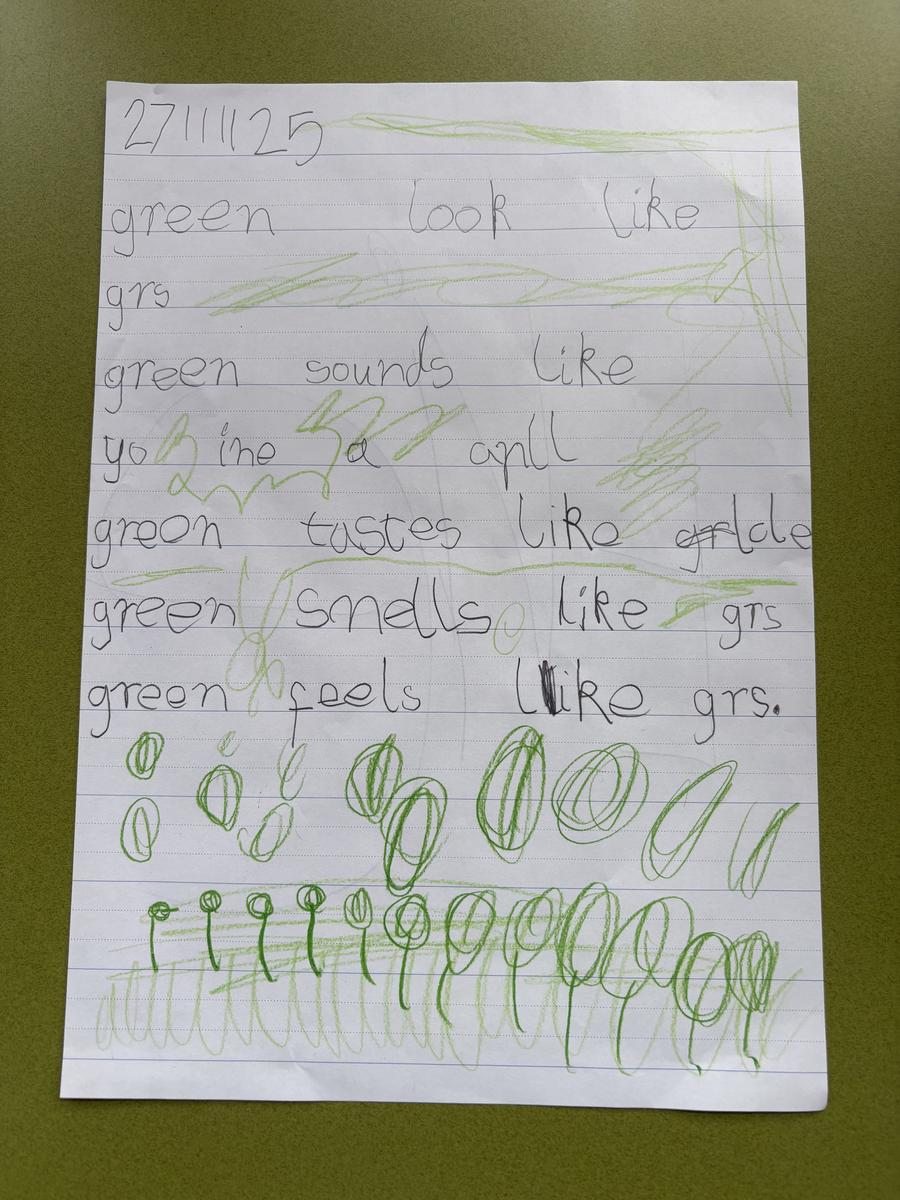 27/11/25
green look like
grs
green sounds like
yo ine a apll
green tastes like
green smells like grs
green feels like grs.